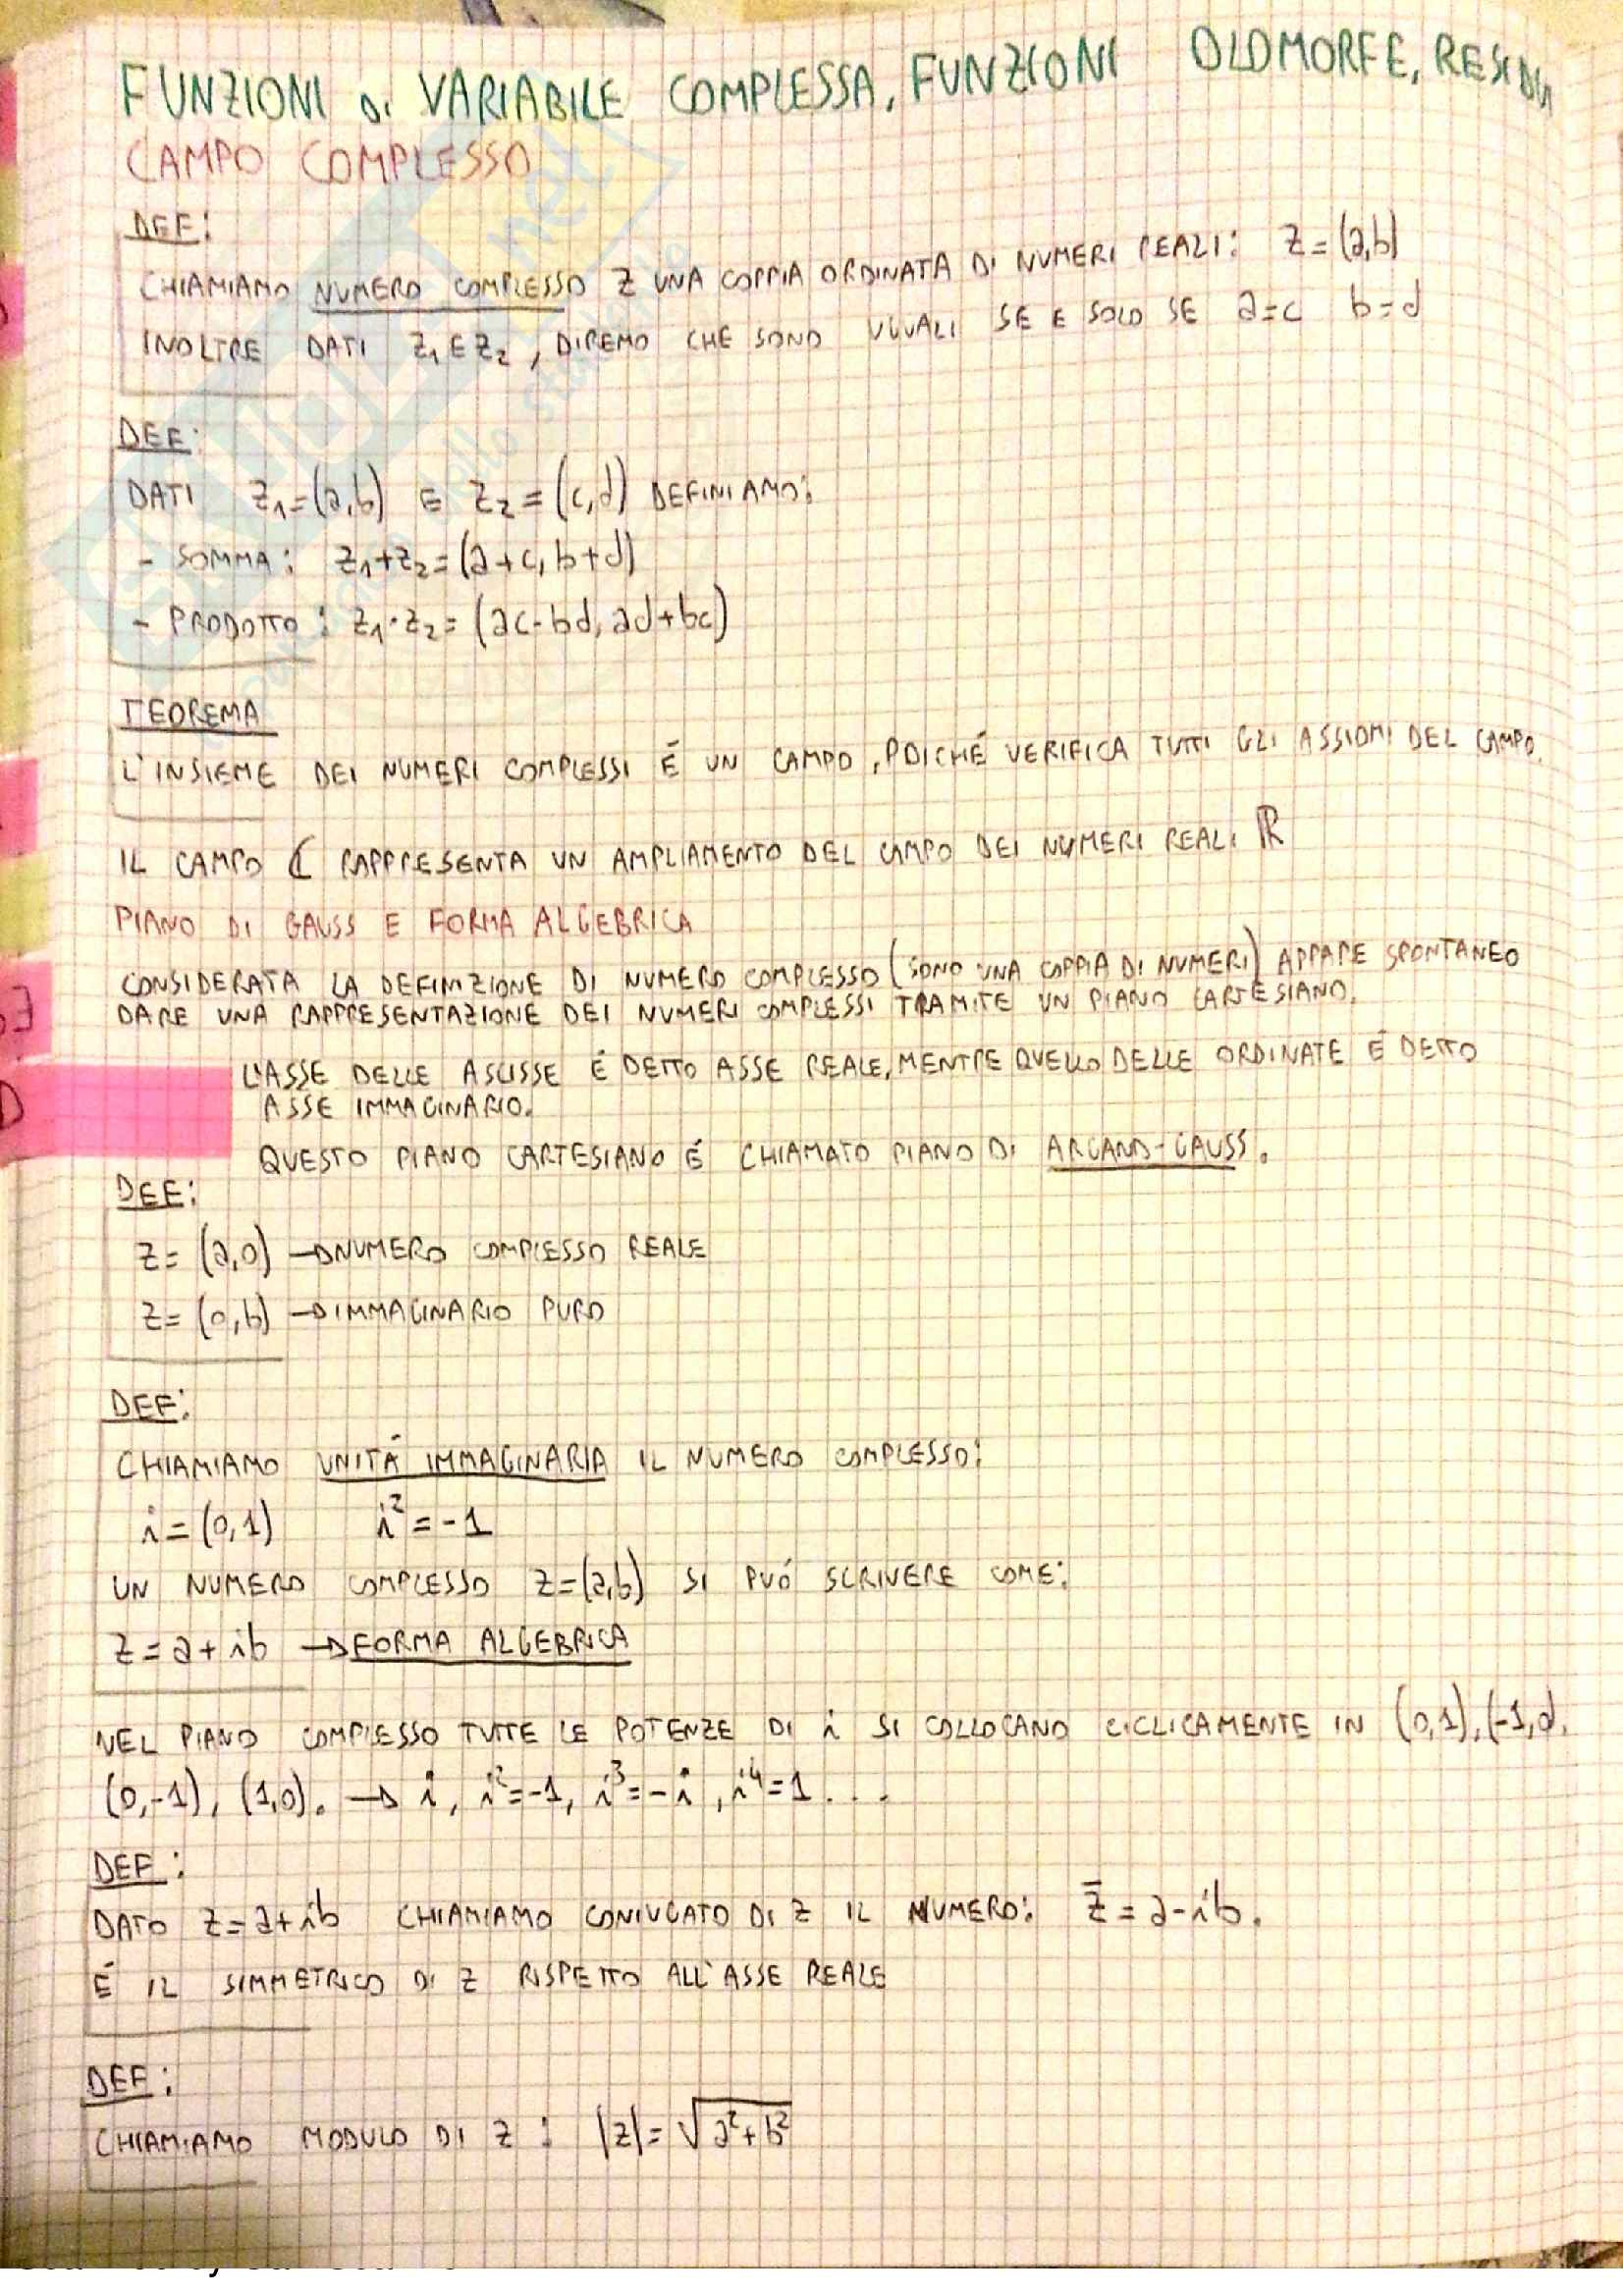 FUNZIONI DI VARIABILE COMPLESSA, FUNZIONI OLOMORFE, RESIDUI
CAMPO COMPLESSO
DEF:
CHIAMIAMO NUMERO COMPLESSO Z UNA COPPIA ORDINATA DI NUMERI REALI: Z = (a,b)
INOLTRE DATI Z₁ E Z₂, DIREMO CHE SONO UGUALI SE E SOLO SE a=c b=d
DEF:
DATI Z₁=(a,b) E Z₂=(c,d) DEFINIAMO:
- SOMMA: Z₁+Z₂=(a+c, b+d)
- PRODOTTO: Z₁·Z₂=(ac-bd, ad+bc)
TEOREMA
L'INSIEME DEI NUMERI COMPLESSI É UN CAMPO, POICHÉ VERIFICA TUTTI GLI ASSIOMI DEL CAMPO.
IL CAMPO ℂ RAPPRESENTA UN AMPLIAMENTO DEL CAMPO DEI NUMERI REALI ℝ
PIANO DI GAUSS E FORMA ALGEBRICA
CONSIDERATA LA DEFINIZIONE DI NUMERO COMPLESSO (SONO UNA COPPIA DI NUMERI) APPARE SPONTANEO
DARE UNA RAPPRESENTAZIONE DEI NUMERI COMPLESSI TRAMITE UN PIANO CARTESIANO.
L'ASSE DELLE ASCISSE É DETTO ASSE REALE, MENTRE QUELLO DELLE ORDINATE É DETTO
ASSE IMMAGINARIO.
QUESTO PIANO CARTESIANO É CHIAMATO PIANO DI ARGAND-GAUSS.
DEF:
Z = (a,0) → NUMERO COMPLESSO REALE
Z = (0,b) → IMMAGINARIO PURO
DEF:
CHIAMIAMO UNITÁ IMMAGINARIA IL NUMERO COMPLESSO:
i = (0,1) i² = -1
UN NUMERO COMPLESSO Z=(a,b) SI PUÓ SCRIVERE COME:
Z = a + ib → FORMA ALGEBRICA
NEL PIANO COMPLESSO TUTTE LE POTENZE DI i SI COLLOCANO CICLICAMENTE IN (0,1), (-1,0),
(0,-1), (1,0). → i, i²=-1, i³=-i, i⁴=1...
DEF:
DATO Z = a+ib CHIAMIAMO CONIUGATO DI Z IL NUMERO: Z̄ = a-ib.
É IL SIMMETRICO DI Z RISPETTO ALL'ASSE REALE
DEF:
CHIAMIAMO MODULO DI Z: |Z| = √a²+b²